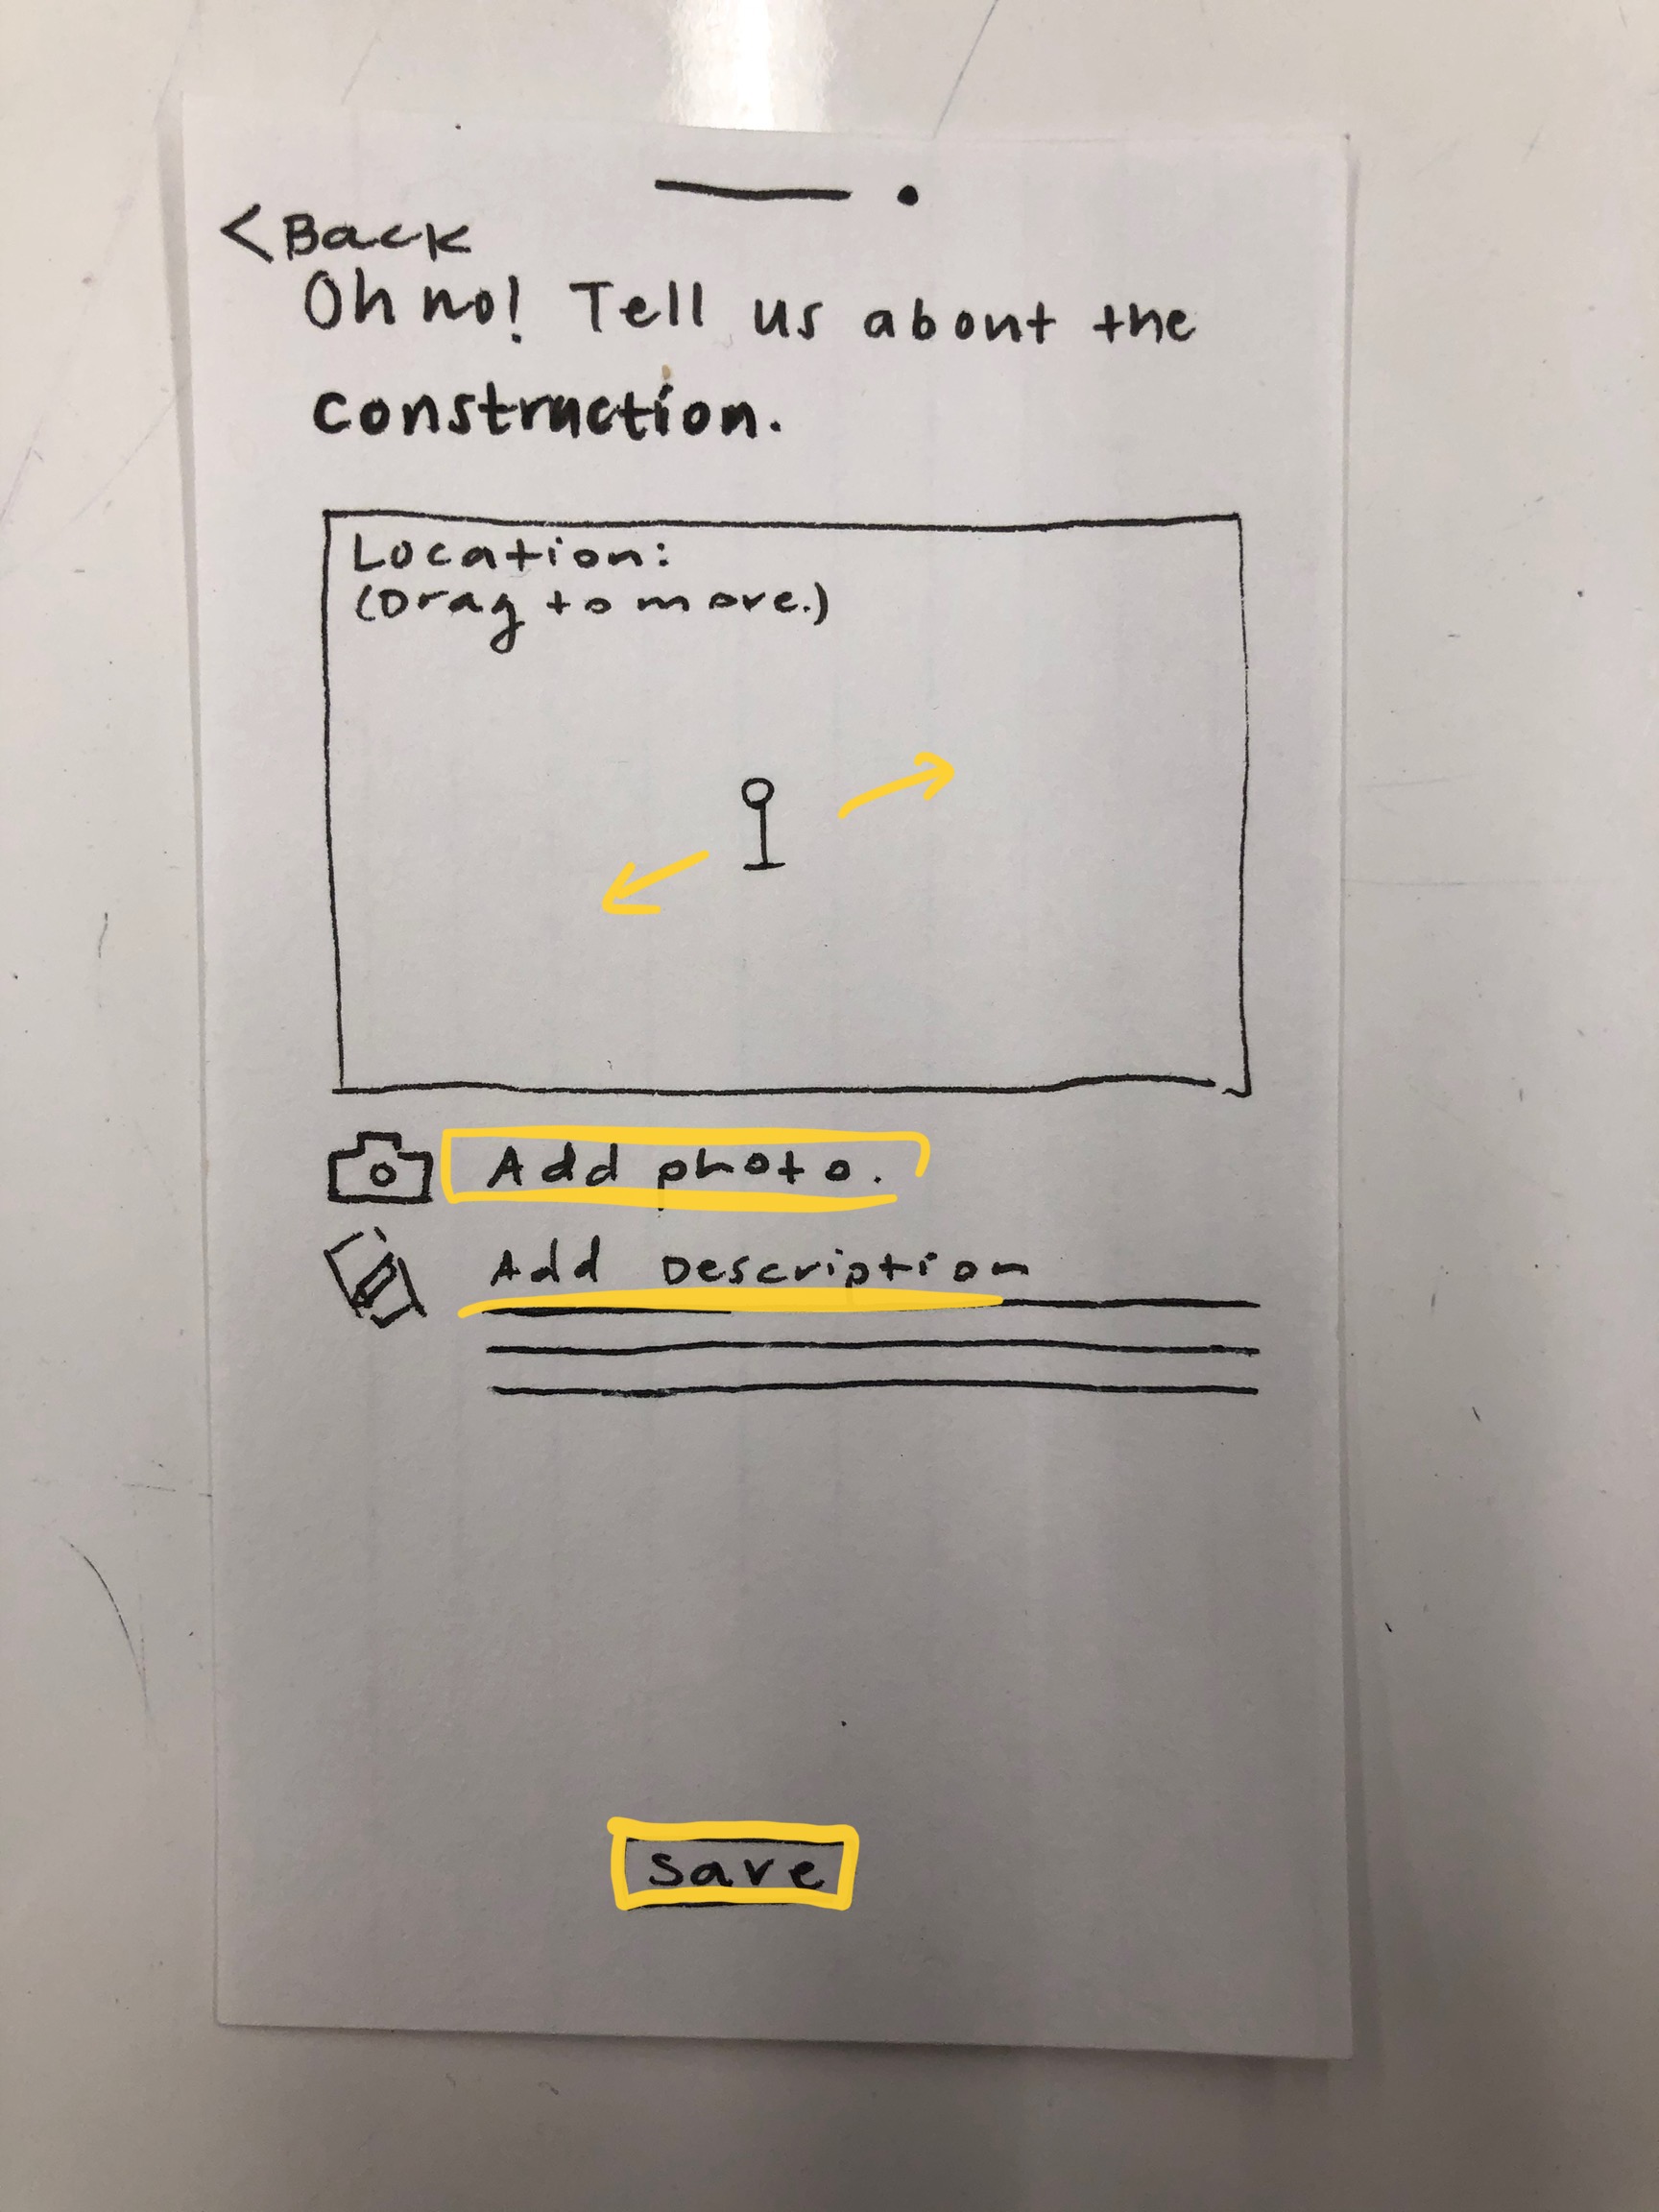 <Back
Oh no! Tell us about the
construction.
Location:
(Drag to move.)
Add photo.
Add Description
Save